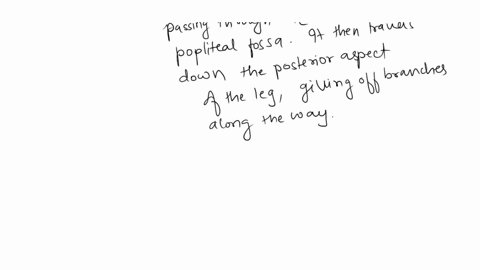 passing through
popliteal fossa. It then travels
down the posterior aspect
of the leg, giving off branches
along the way.